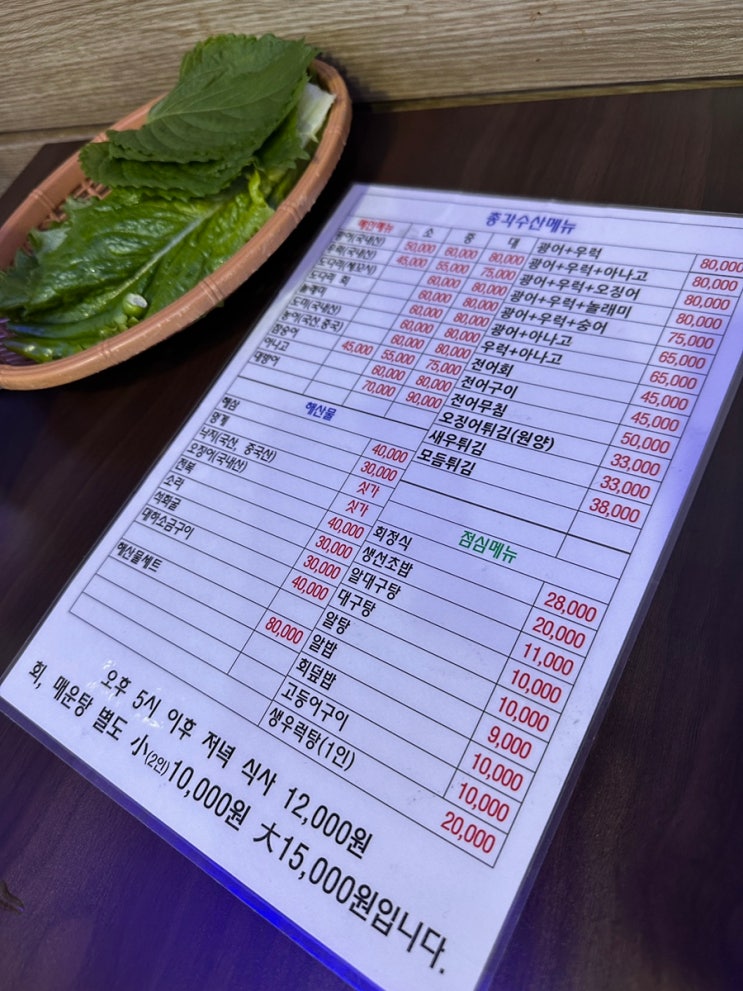 총각수산메뉴
해산메뉴 소 중 대
광어(국내산) 50,000 60,000 80,000
우럭(국내산) 45,000 55,000 75,000
도다리(세꼬시) 60,000 80,000
도다리 회 60,000 80,000
놀래미 60,000 80,000
도미(국내산) 60,000 80,000
농어(국산,중국) 60,000 80,000
참숭어 45,000 55,000 75,000
아나고 60,000 80,000
대방어 70,000 90,000
광어+우럭 80,000
광어+우럭+아나고 80,000
광어+우럭+오징어 80,000
광어+우럭+놀래미 80,000
광어+우럭+숭어 75,000
광어+아나고 65,000
우럭+아나고 65,000
전어회 45,000
전어구이 45,000
전어무침 50,000
오징어튀김(원양) 33,000
새우튀김 33,000
모듬튀김 38,000
해산물
해삼 40,000
멍게 30,000
낙지(국산, 중국산) 싯가
오징어(국내산) 싯가
전복 40,000
소라 30,000
석화굴 30,000
대하소금구이 40,000
해산물세트 80,000
점심메뉴
회정식 28,000
생선초밥 20,000
알대구탕 11,000
대구탕 10,000
알탕 10,000
알밥 9,000
회덮밥 10,000
고등어구이 10,000
생우럭탕(1인) 20,000
오후 5시 이후 저녁 식사 12,000원
회, 매운탕 별도 小(2인)10,000원 大15,000원입니다.